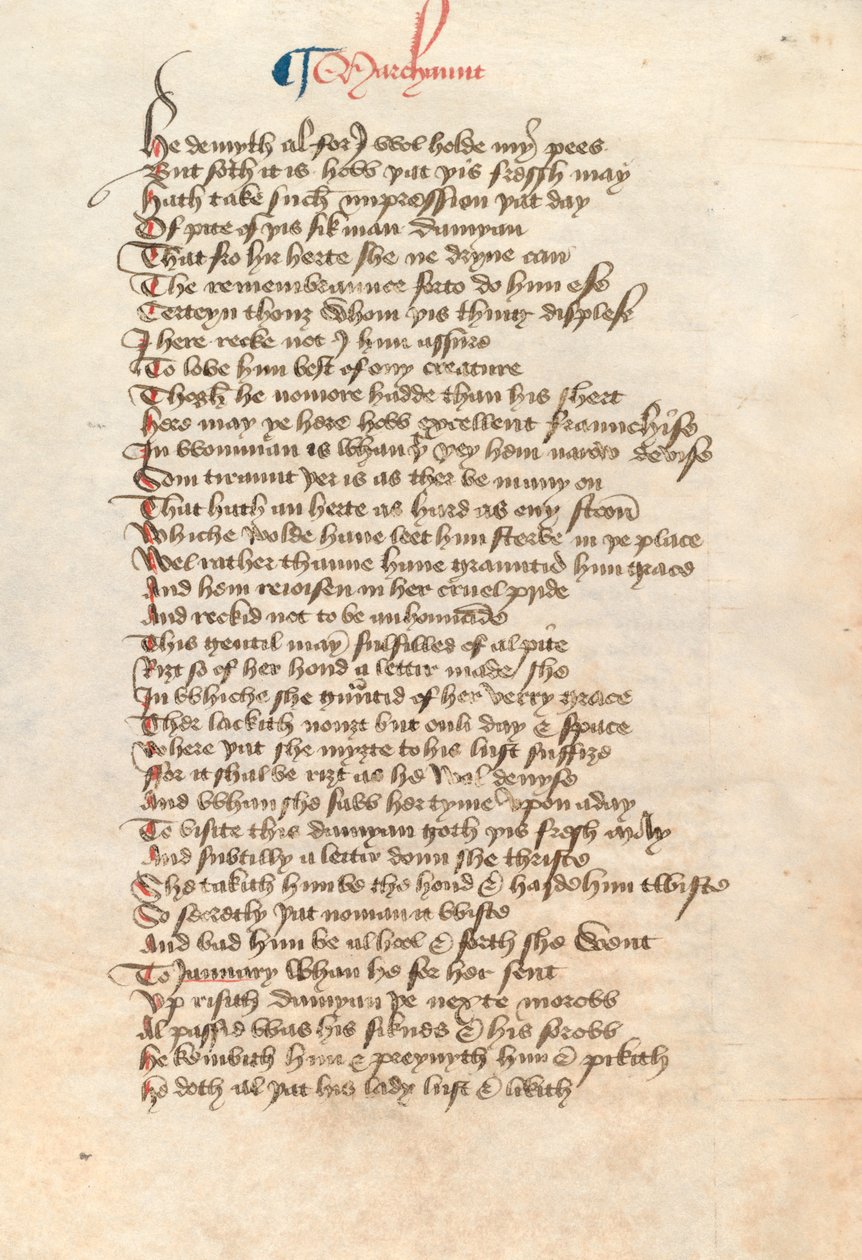 ¶ Marchaunt
He demyth al for I wol holde my pees
But soth it is how þat þis fressh may
Hath take such impression þat day
Of pite of þis sik man damyan
That fro hir herte she ne dryue can
The remembraunce forto do him ese
Certeyn thouȝ whom þis thing displese
I here recke not I him assure
To love him best of ony creature
Thogh he nomore hadde than his shert
here may ye here how excellent fraunchise
In womman is whan þey hem narow devise
Som tiraunt þer is as ther be many on
That hath an herte as hard as eny stoon
Whiche wolde haue leet him sterve in þe place
Wel rather thanne haue grauntid him grace
And hem reioisen in her cruel pride
And reckid not to be an homicide
This gentil may fulfilled of al pite
Riȝt so of her hond a lettir made she
In whiche she grauntid of her verry grace
Ther lackith nouȝt but onli day & space
Where þat she myȝte to his lust suffize
ffor it shal be riȝt as he wol deuyse
And whan she saw her tyme vpon a day
To visite this damyan goth þis fresh may
And subtilly a lettir doun she thriste
She takith him be the hond & harde him twiste
So secrethy þat noman it wiste
And bad him be al hool & forth she went
To January whan he for her sent
Vp risith damyan þe nexte morow
Al passid was his siknes & his sorow
he kembith him & preynyth him & pikith
he doth al þat his lady lust & likith